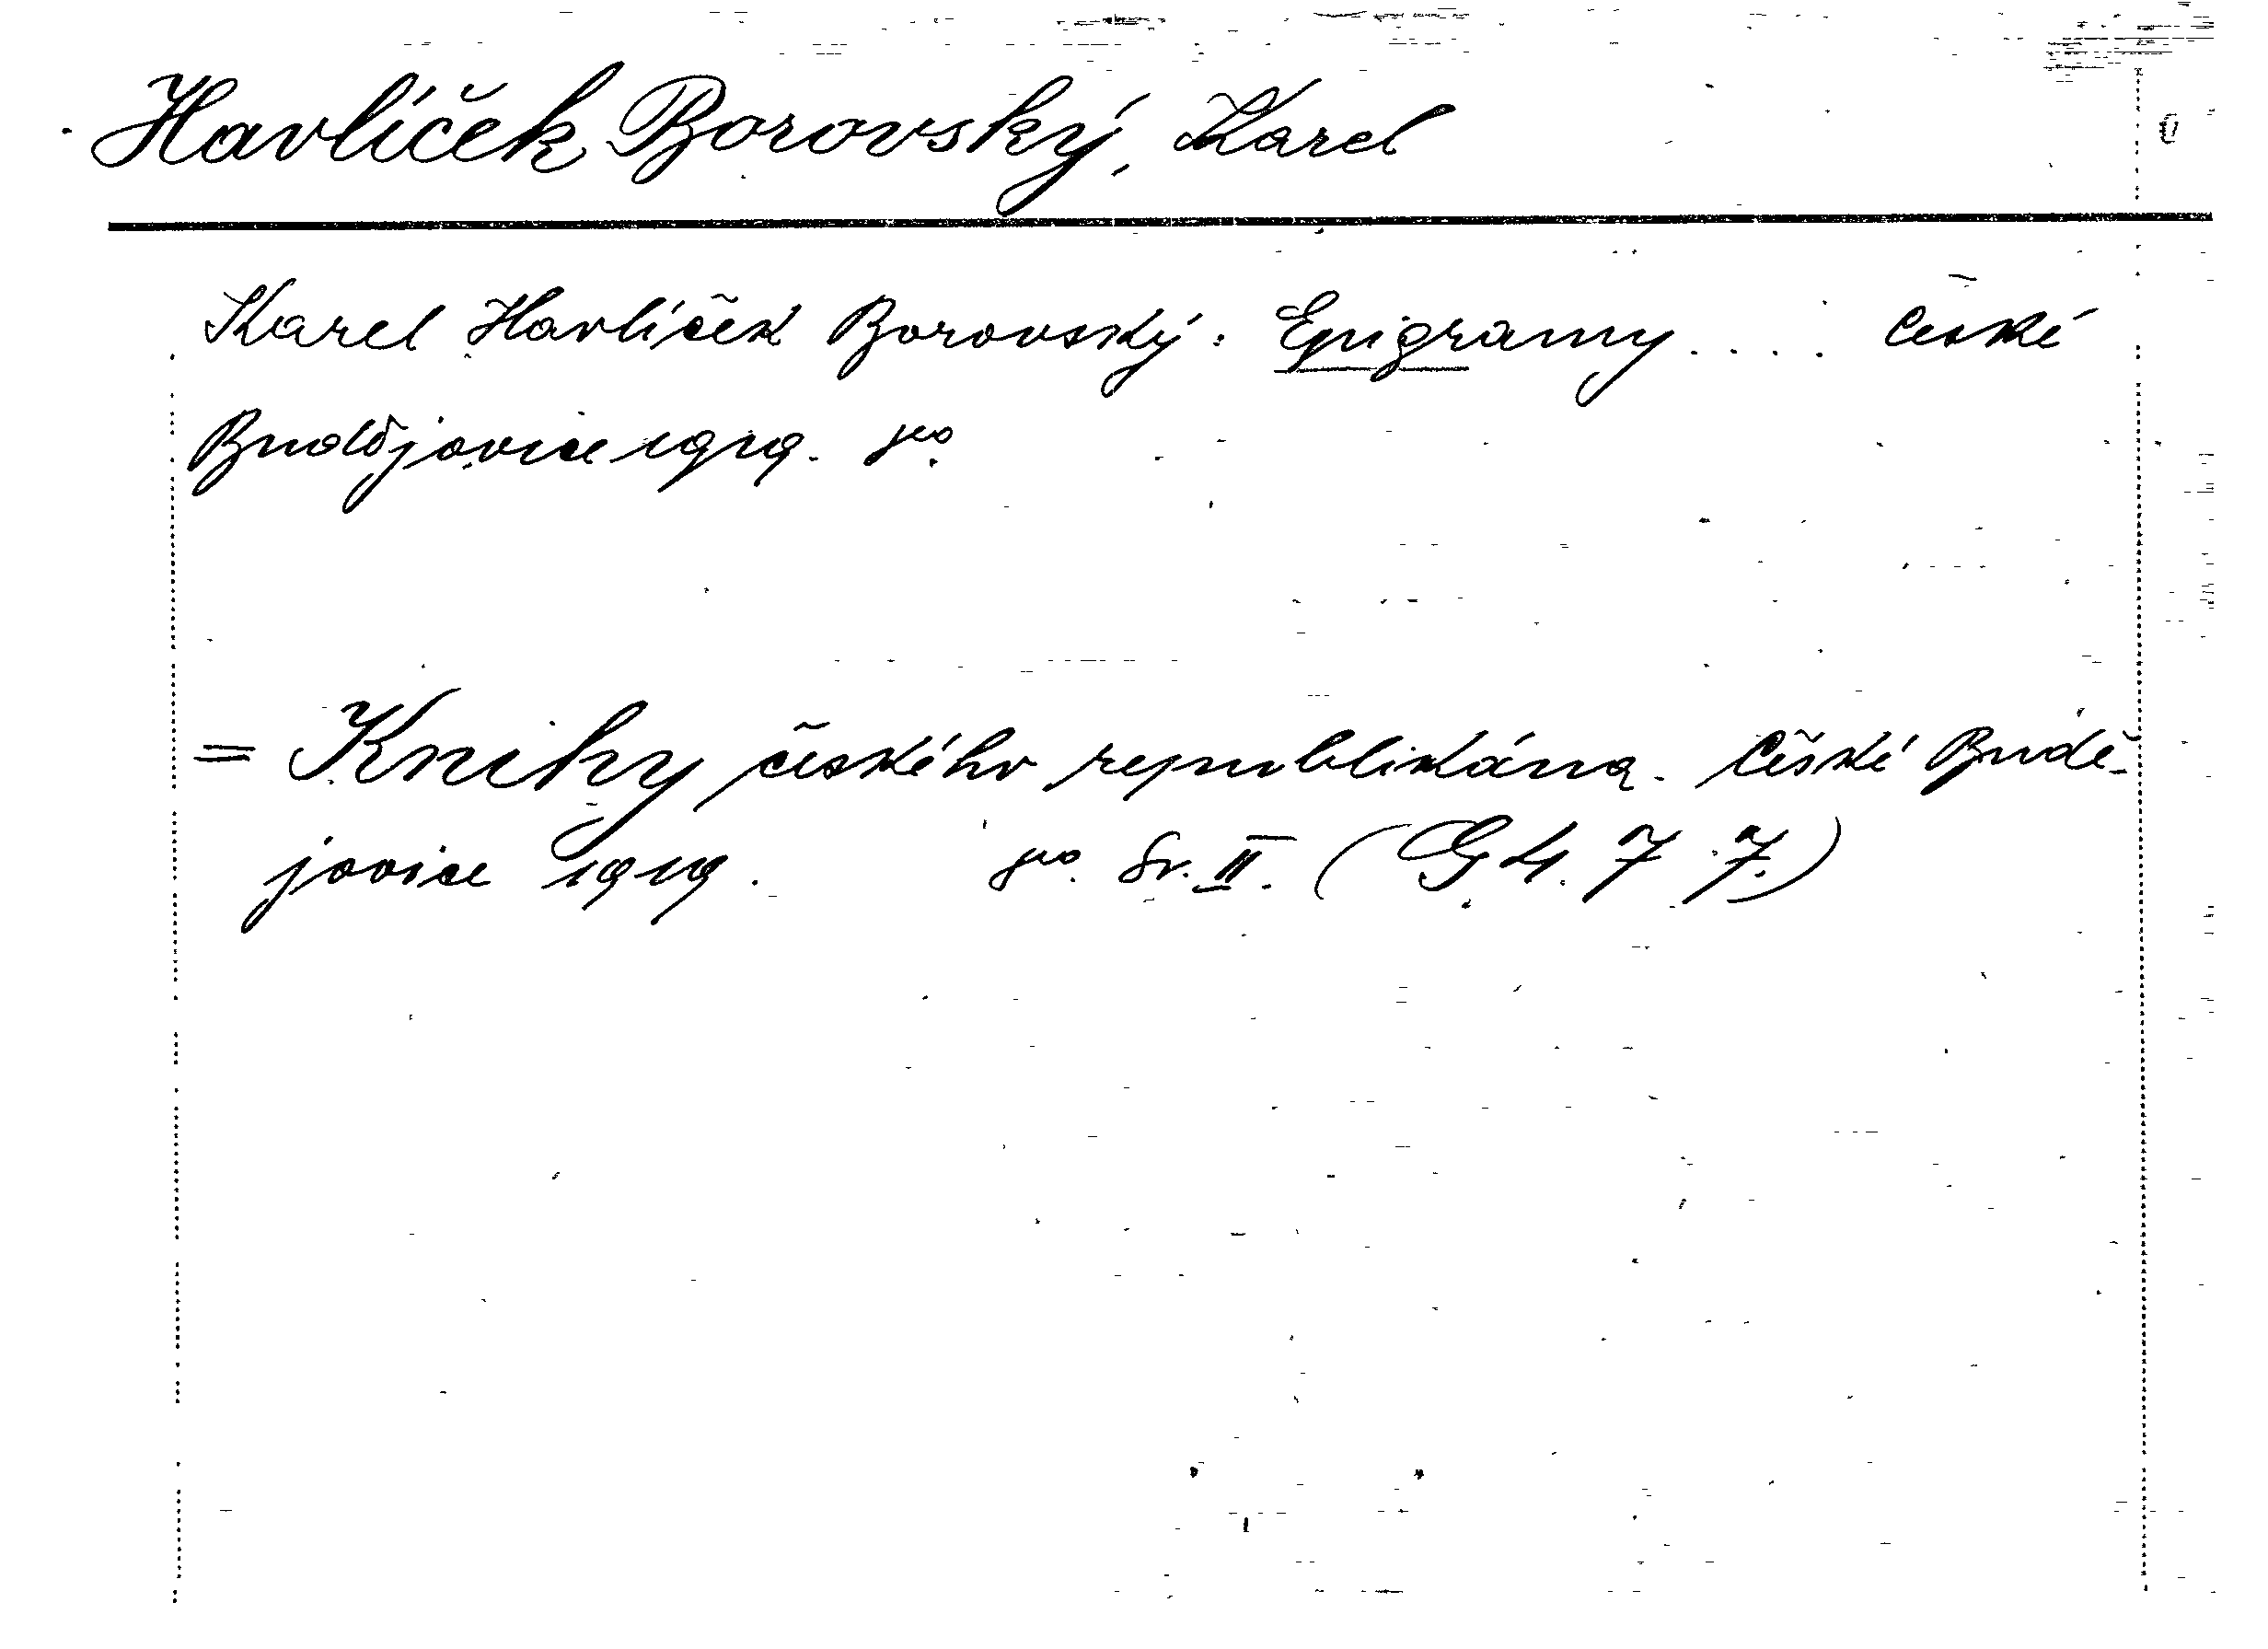 Havlíček Borovský, Karel
Karel Havlíček Borovský: Epigramy.... České
Budějovice 1919. 8vo.
= Knihy českého republikána. České Budě-
jovice 1919. 8vo. Sv. II. (G 4. 7 7.)